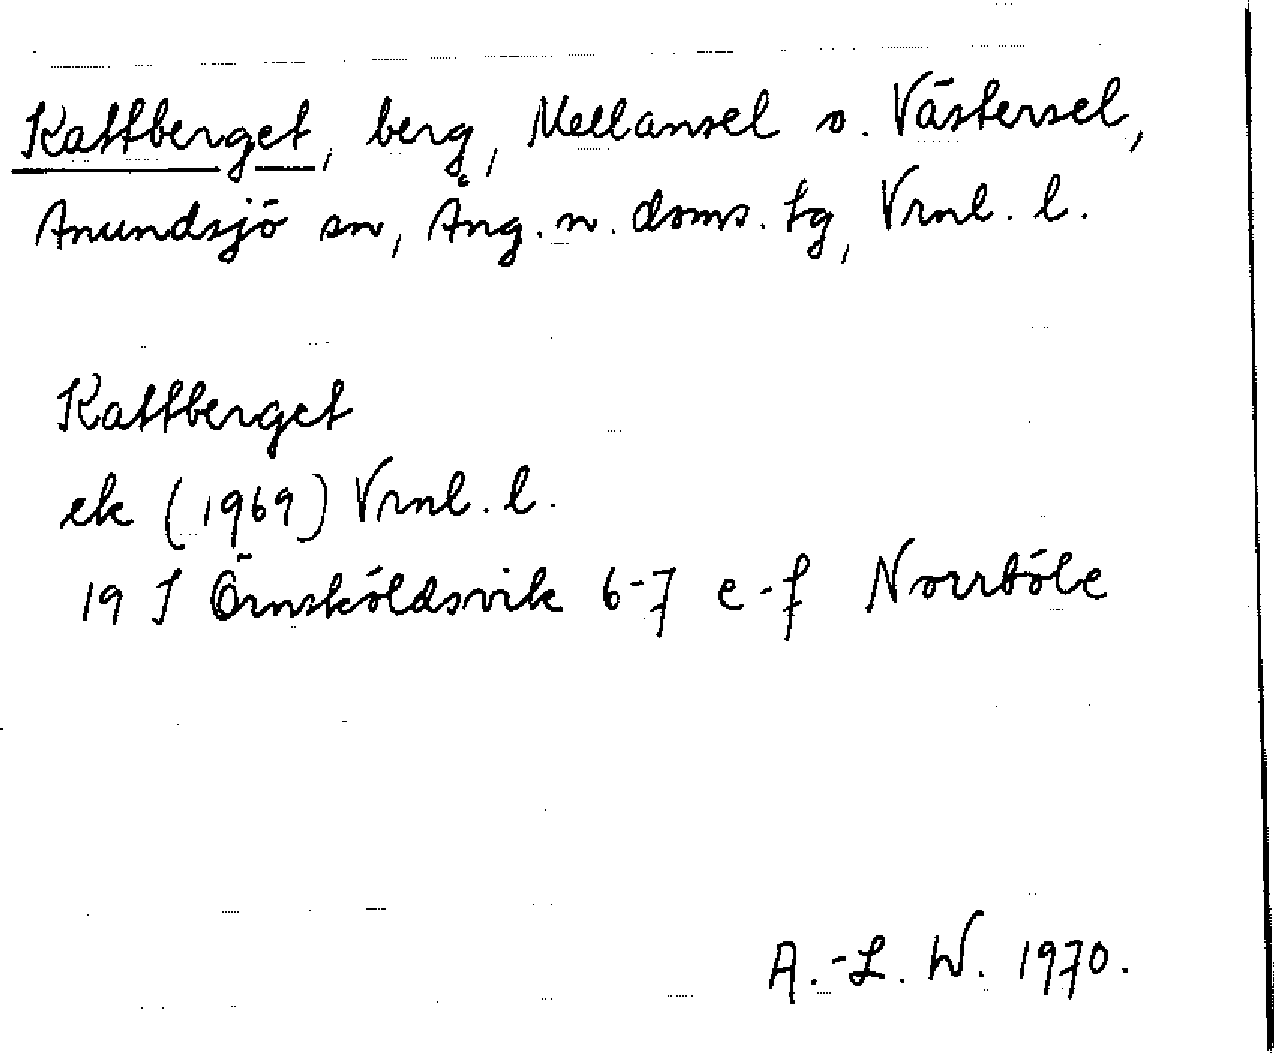 Kattberget, berg, Mellansel o. Västersel,
Anundsjö sn, Ång. n. doms. tg, Vrnl. l.
Kattberget
ek (1969) Vrnl. l.
19 J Örnsköldsvik 6-7 e-f Norrböle
A.-L. W. 1970.